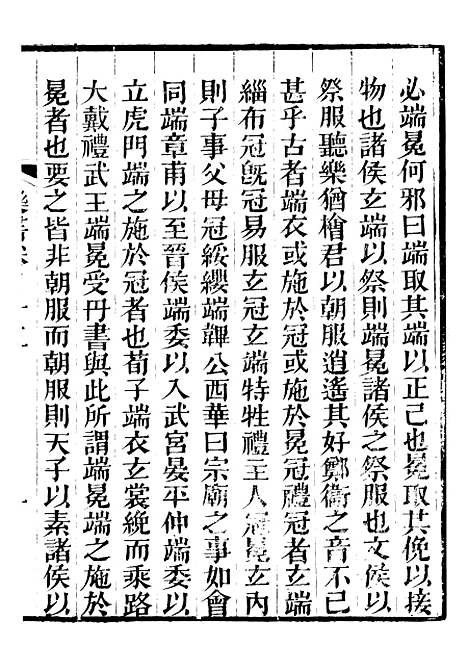 必端冕何邪曰端取其端以正己也冕取其俛以接
物也諸侯玄端以祭則端冕諸侯之祭服也文侯以
祭服聽樂猶檜君以朝服逍遙其好鄭衛之音不已
甚乎古者端衣或施於冠或施於冕冠禮冠者玄端
緇布冠既冠易服玄冠玄端特牲禮主人冠冕玄內
則子事父母冠緌纓端韠公西華曰宗廟之事如會
同端章甫以至晉侯端委以入武宮晏平仲端委以
立虎門端之施於冠者也荀子端衣玄裳絻而乘路
大戴禮武王端冕受丹書與此所謂端冕端之施於
冕者也要之皆非朝服而朝服則天子以素諸侯以